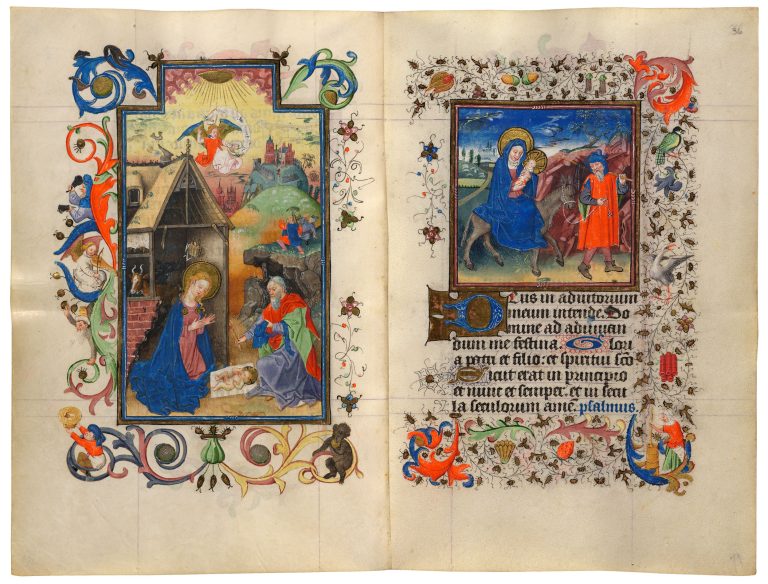 Deus in adiutorium
meum intende. Do
mine ad adiuuan
dum me festina. Glori
a patri et filio: et spiritui sc̄o
Sicut erat in principio
et nunc et semper: et in secu
la seculorum amē. psalmus.